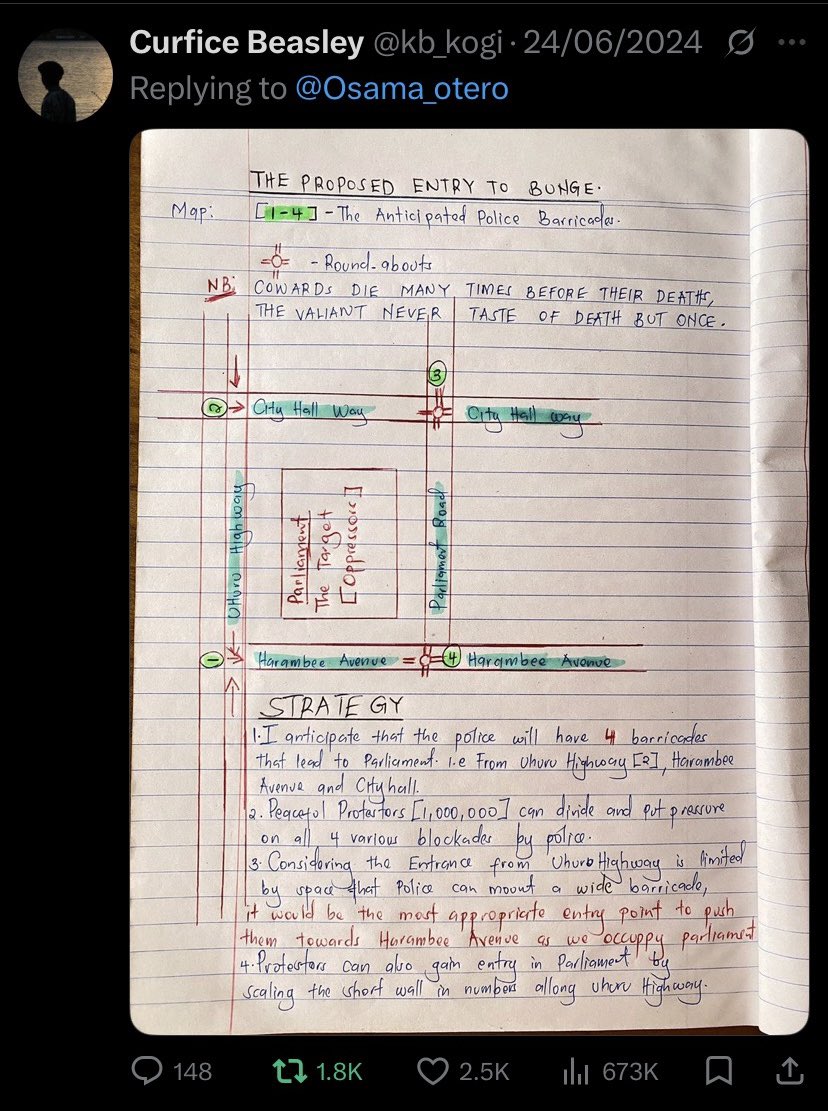 Curfice Beasley @kb_kogi · 24/06/2024
Replying to @Osama_otero
THE PROPOSED ENTRY TO BUNGE.
Map: [1-4] - The Anticipated Police Barricades.
- Round-abouts
NB: COWARDS DIE MANY TIMES BEFORE THEIR DEATHS,
THE VALIANT NEVER TASTE OF DEATH BUT ONCE.
3
2 City Hall Way City Hall way
Uhuru Highway
Parliament
The Target
[Oppressors]
Parliament Road
1 Harambee Avenue 4 Harambee Avenue
STRATEGY
1. I anticipate that the police will have 4 barricades
that lead to Parliament. i.e From Uhuru Highway [2], Harambee
Avenue and Cityhall.
2. Peaceful Protestors [1,000,000] can divide and put pressure
on all 4 various blockades by police.
3. Considering the Entrance from Uhuru Highway is limited
by space that Police can mount a wide barricade,
it would be the most appropriate entry point to push
them towards Harambee Avenue as we occuppy parliament
4. Protestors can also gain entry in Parliament by
scaling the short wall in numbers allong uhuru Highway.
148 1.8K 2.5K 673K